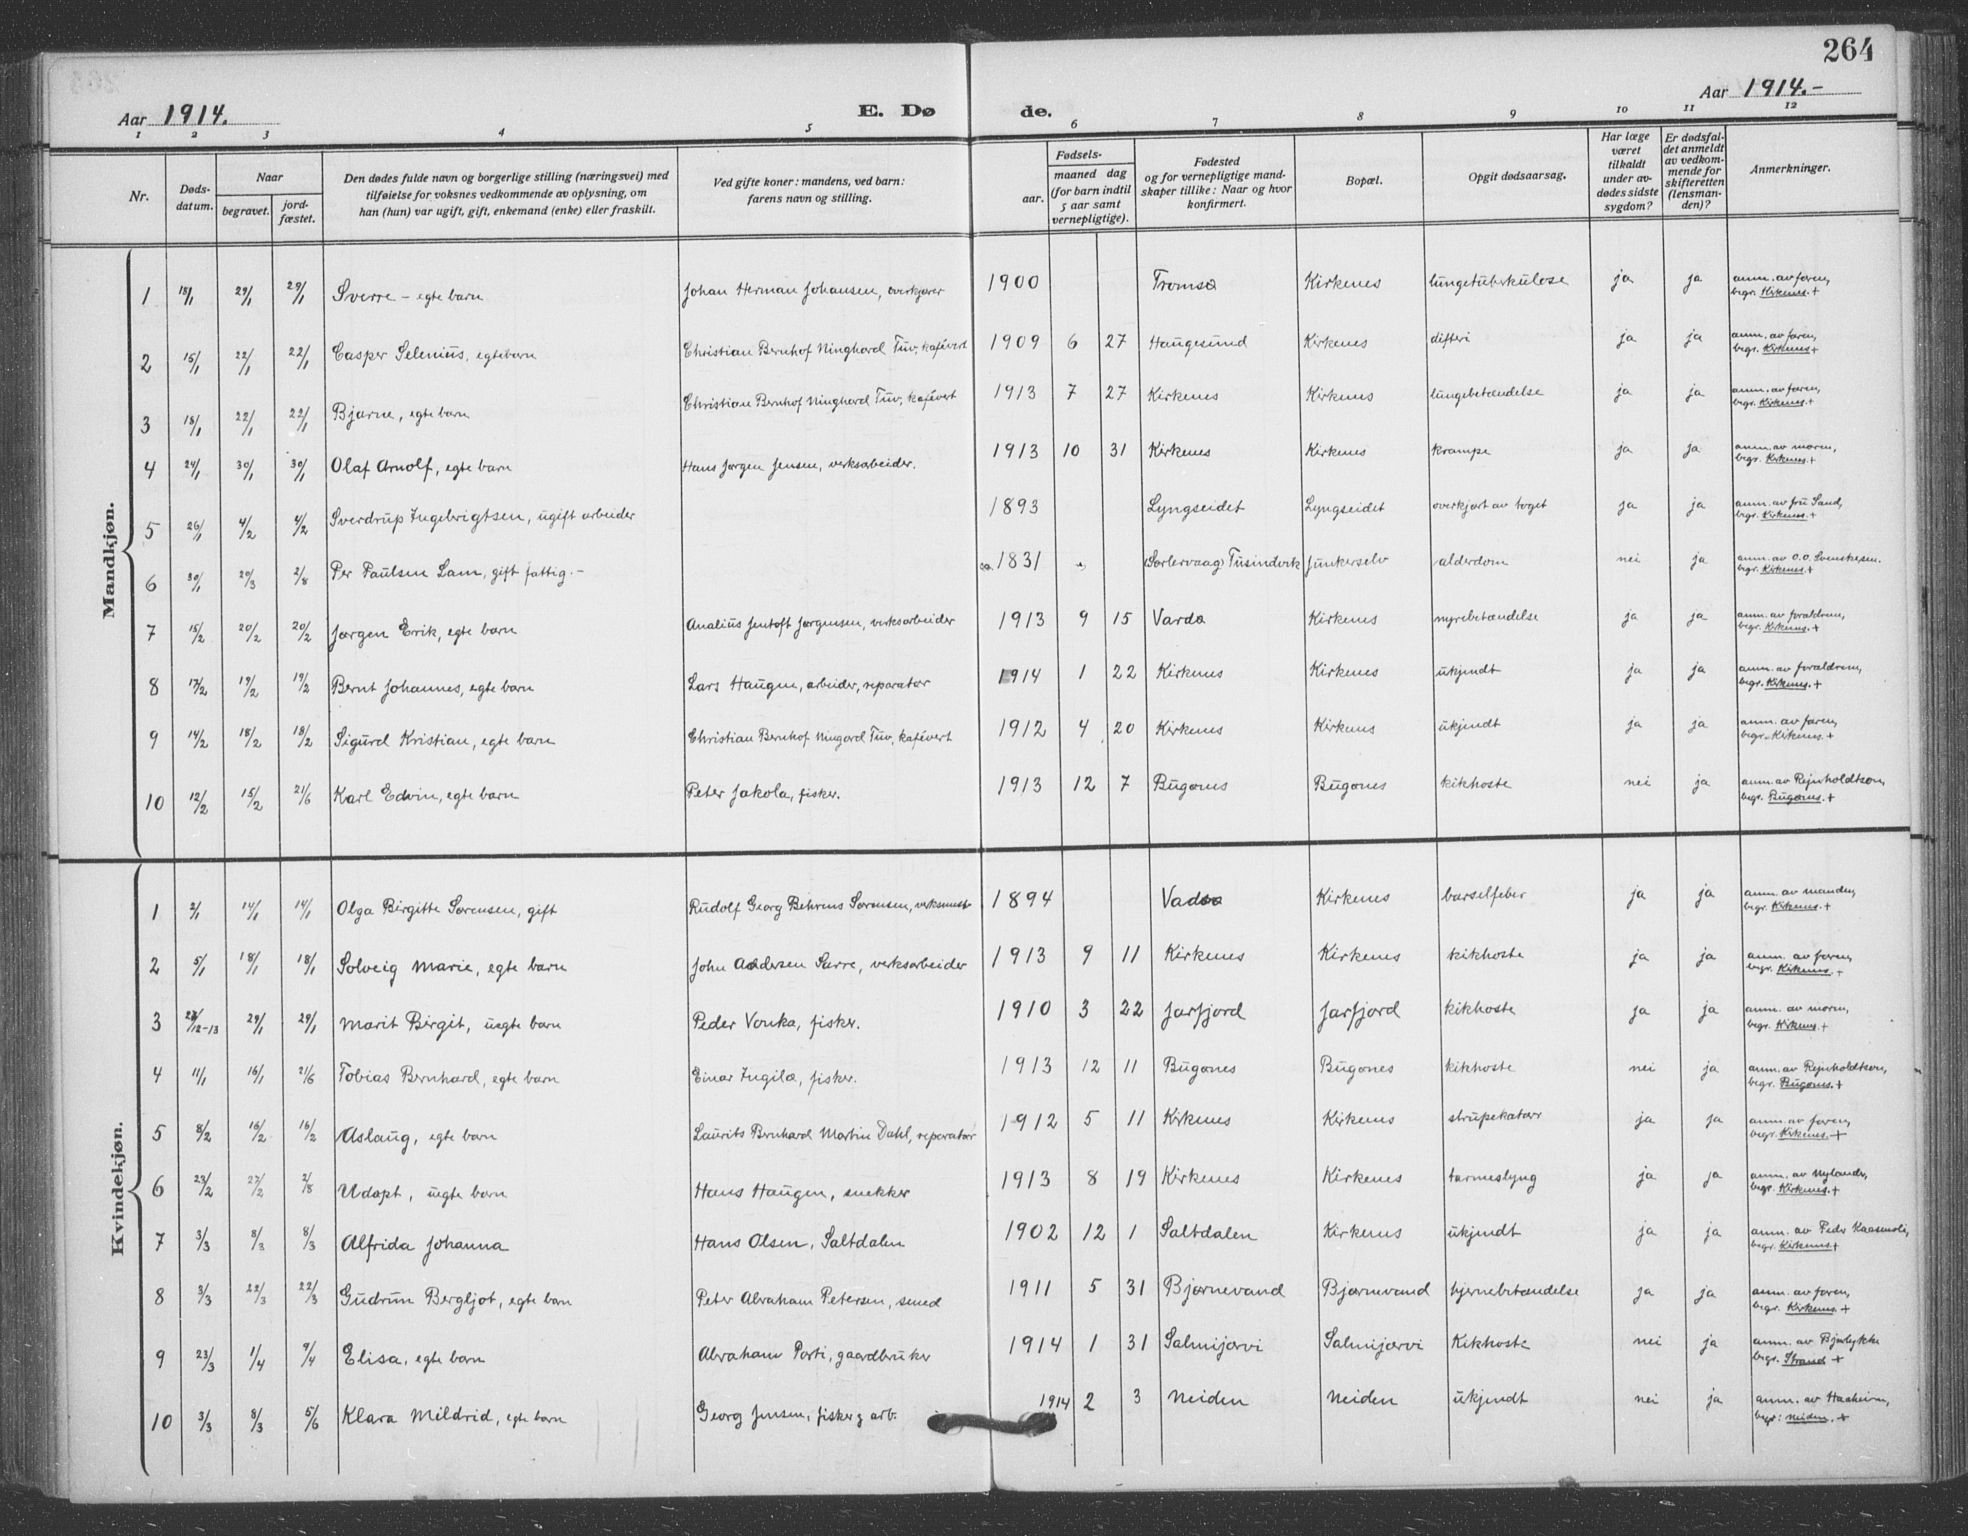 264
Aar 1914. E. Dø de. Aar 1914.-
1 2 3 4 5 6 7 8 9 10 11 12
Nr. Døds-datum. Naar begravet. jord-fæstet. Den dødes fulde navn og borgerlige stilling (næringsvei) med tilføielse for voksnes vedkommende av oplysning, om han (hun) var ugift, gift, enkemand (enke) eller fraskilt. Ved gifte koner: mandens, ved barn: farens navn og stilling. Fødsels- aar. maaned dag (for barn indtil 5 aar samt vernepligtige). Fødested og for vernepligtige mand-skaper tillike: Naar og hvor konfirmert. Bopæl. Opgit dødsaarsag. Har læge været tilkaldt under av-dødes sidste sygdom? Er dødsfal-det anmeldt av vedkom-mende for skifteretten (lensman-den)? Anmerkninger.
Mandkjøn.
1 18/1 29/1 29/1 Sverre - egte barn Johan Herman Johansen, overkjører 1900 Tromsø Kirkenes lungetuberkulose ja ja anm. av faren, begr. Kirkenes.+
2 15/1 22/1 22/1 Casper Selenius, egtebarn Christian Bernhof Ninghard Tuv, kafévert 1909 6 27 Haugesund Kirkenes difteri ja ja anm. av faren, begr. Kirkenes+
3 18/1 22/1 22/1 Bjarne, egte barn Christian Bernhof Ninghard Tuv, kafévert 1913 7 27 Kirkenes Kirkenes lungebetændelse ja ja anm. av faren, begr. Kirkenes+
4 24/1 30/1 30/1 Olaf Arnolf, egte barn Hans Jørgen Jensen, verksarbeider. 1913 10 31 Kirkenes Kirkenes krampe ja ja anm. av moren, begr. Kirkenes.+
5 26/1 4/2 4/2 Sverdrup Ingebrigtsen, ugift arbeider 1893 Lyngseidet Lyngseidet overkjørt av toget ja ja anm. av fru Sand, begr. Kirkenes+
6 30/1 20/3 2/8 Per Paulsen Lam, gift fattig.- ca. 1831 (Sørlervaag) Tusindvik Junkerselv alderdom nei ja anm. av O.O. Svenskesen. begr. Kirkenes.+
7 15/2 20/2 20/2 Jørgen Erik, egte barn Analius Jentoft Jørgensen, verksarbeider 1913 9 15 Vardø Kirkenes nyrebetændelse ja ja anm. av forældrene, begr. Kirkenes.+
8 17/2 19/2 19/2 Bernt Johannes, egte barn Lars Haugen, arbeider, reparatør 1914 1 22 Kirkenes Kirkenes ukjendt ja ja anm. av forældrene, begr. Kirkenes.+
9 14/2 18/2 18/2 Sigurd Kristian, egte barn Christian Bernhof Ningard Tuv, kafévert 1912 4 20 Kirkenes Kirkenes ukjendt ja ja anm. av faren, begr. Kikenes.+
10 12/2 15/2 21/6 Karl Edvin, egte barn Peter Jakola, fisker. 1913 12 7 Bugønes Bugønes kikhoste nei ja anm. av Rejnholdtsen, begr. Bugønes.+
Kvindekjøn.
1 2/1 14/1 14/1 Olga Birgitte Sørensen, gift Rudolf Georg Behrens Sørensen, verksmest. 1894 Vadsø Kirkenes barselfeber ja ja anm. av manden, begr. Kirkenes.+
2 5/1 18/1 18/1 Solveig Marie, egte barn John Andersen Sarre, verksarbeider 1913 9 11 Kirkenes Kirkenes kikhoste ja ja anm. av faren, begr. Kirkenes.+
3 27/12-13 29/1 29/1 Marit Birgit, uegte barn Peder Vonka, fisker. 1910 3 22 Jarfjord Jarfjord kikhoste ja ja anm. av moren, begr. Kirkenes.+
4 11/1 16/1 21/6 Tobias Bernhard, egte barn Einar Ingilæ, fisker. 1913 12 11 Bugønes Bugønes kikhoste nei ja anm. av Rejnholdtsen, begr. Bugønes.+
5 8/2 16/2 16/2 Aslaug, egte barn Laurits Bernhard Martin Dahl, reparatør 1912 5 11 Kirkenes Kirkenes strupekatarr ja ja anm. av faren, begr. Kirkenes.+
6 23/2 27/2 2/8 Udøpt, uegte barn Hans Haugen, snekker 1913 8 19 Kirkenes Kirkenes tarmeslyng ja ja anm. av Nylander, begr. Kirkenes.+
7 3/3 8/3 8/3 Alfrida Johanna Hans Olsen, Saltdalen 1902 12 1 Saltdalen Kirkenes ukjendt ja ja anm. av Peder Kaasmoli, begr. Kirkenes+
8 3/3 22/3 22/3 Gudrun Bergljot, egte barn Peter Abraham Petersen, smed 1911 5 31 Bjørnevand Bjørnevand hjernebetændelse ja ja anm. av faren, begr. Kirkenes.+
9 23/3 1/4 9/4 Elisa, egte barn Abraham Porti, gaardbruker 1914 1 31 Salmijærvi Salmijærvi Kikhoste nei ja anm. av Bjerlykke begr. Strand +
10 3/3 8/3 5/6 Klara Mildrid, egte barn Georg Jensen, fisker & arb. 1914 2 3 Neiden Neiden ukjendt nei ja anm. av Haaheim, begr: Neiden.+